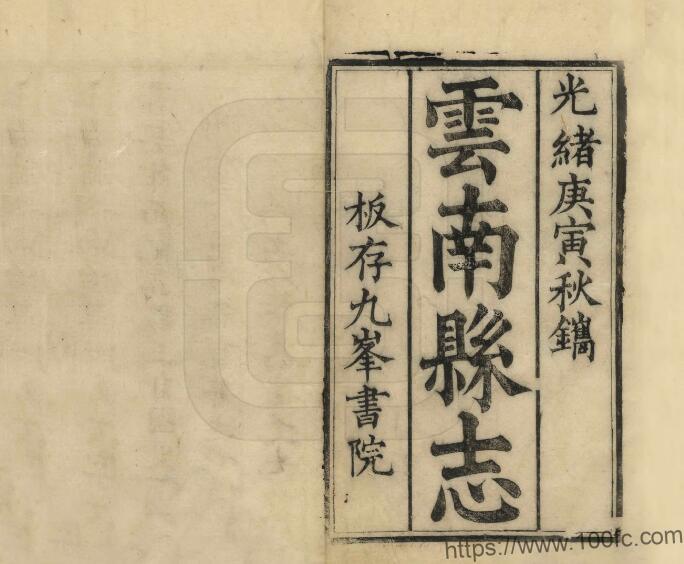 光緒庚寅秋鐫
雲南縣志
板存九峯書院
https://www.100fc.com